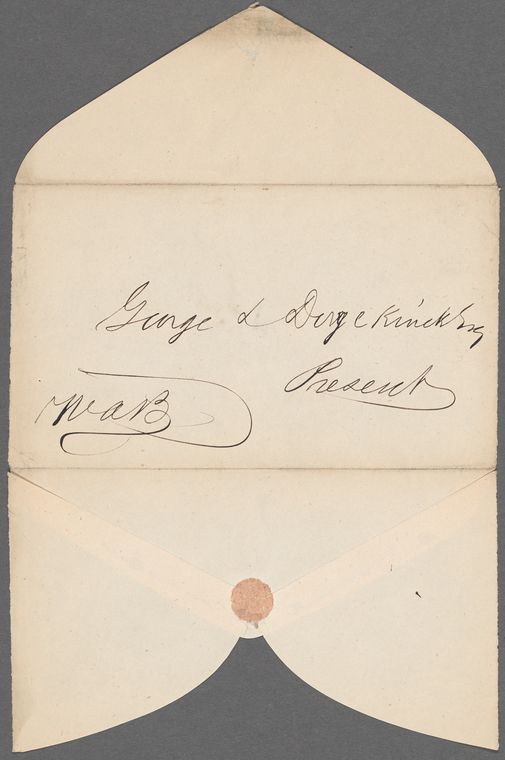 George L Duyckinck Esq
Present
WAB